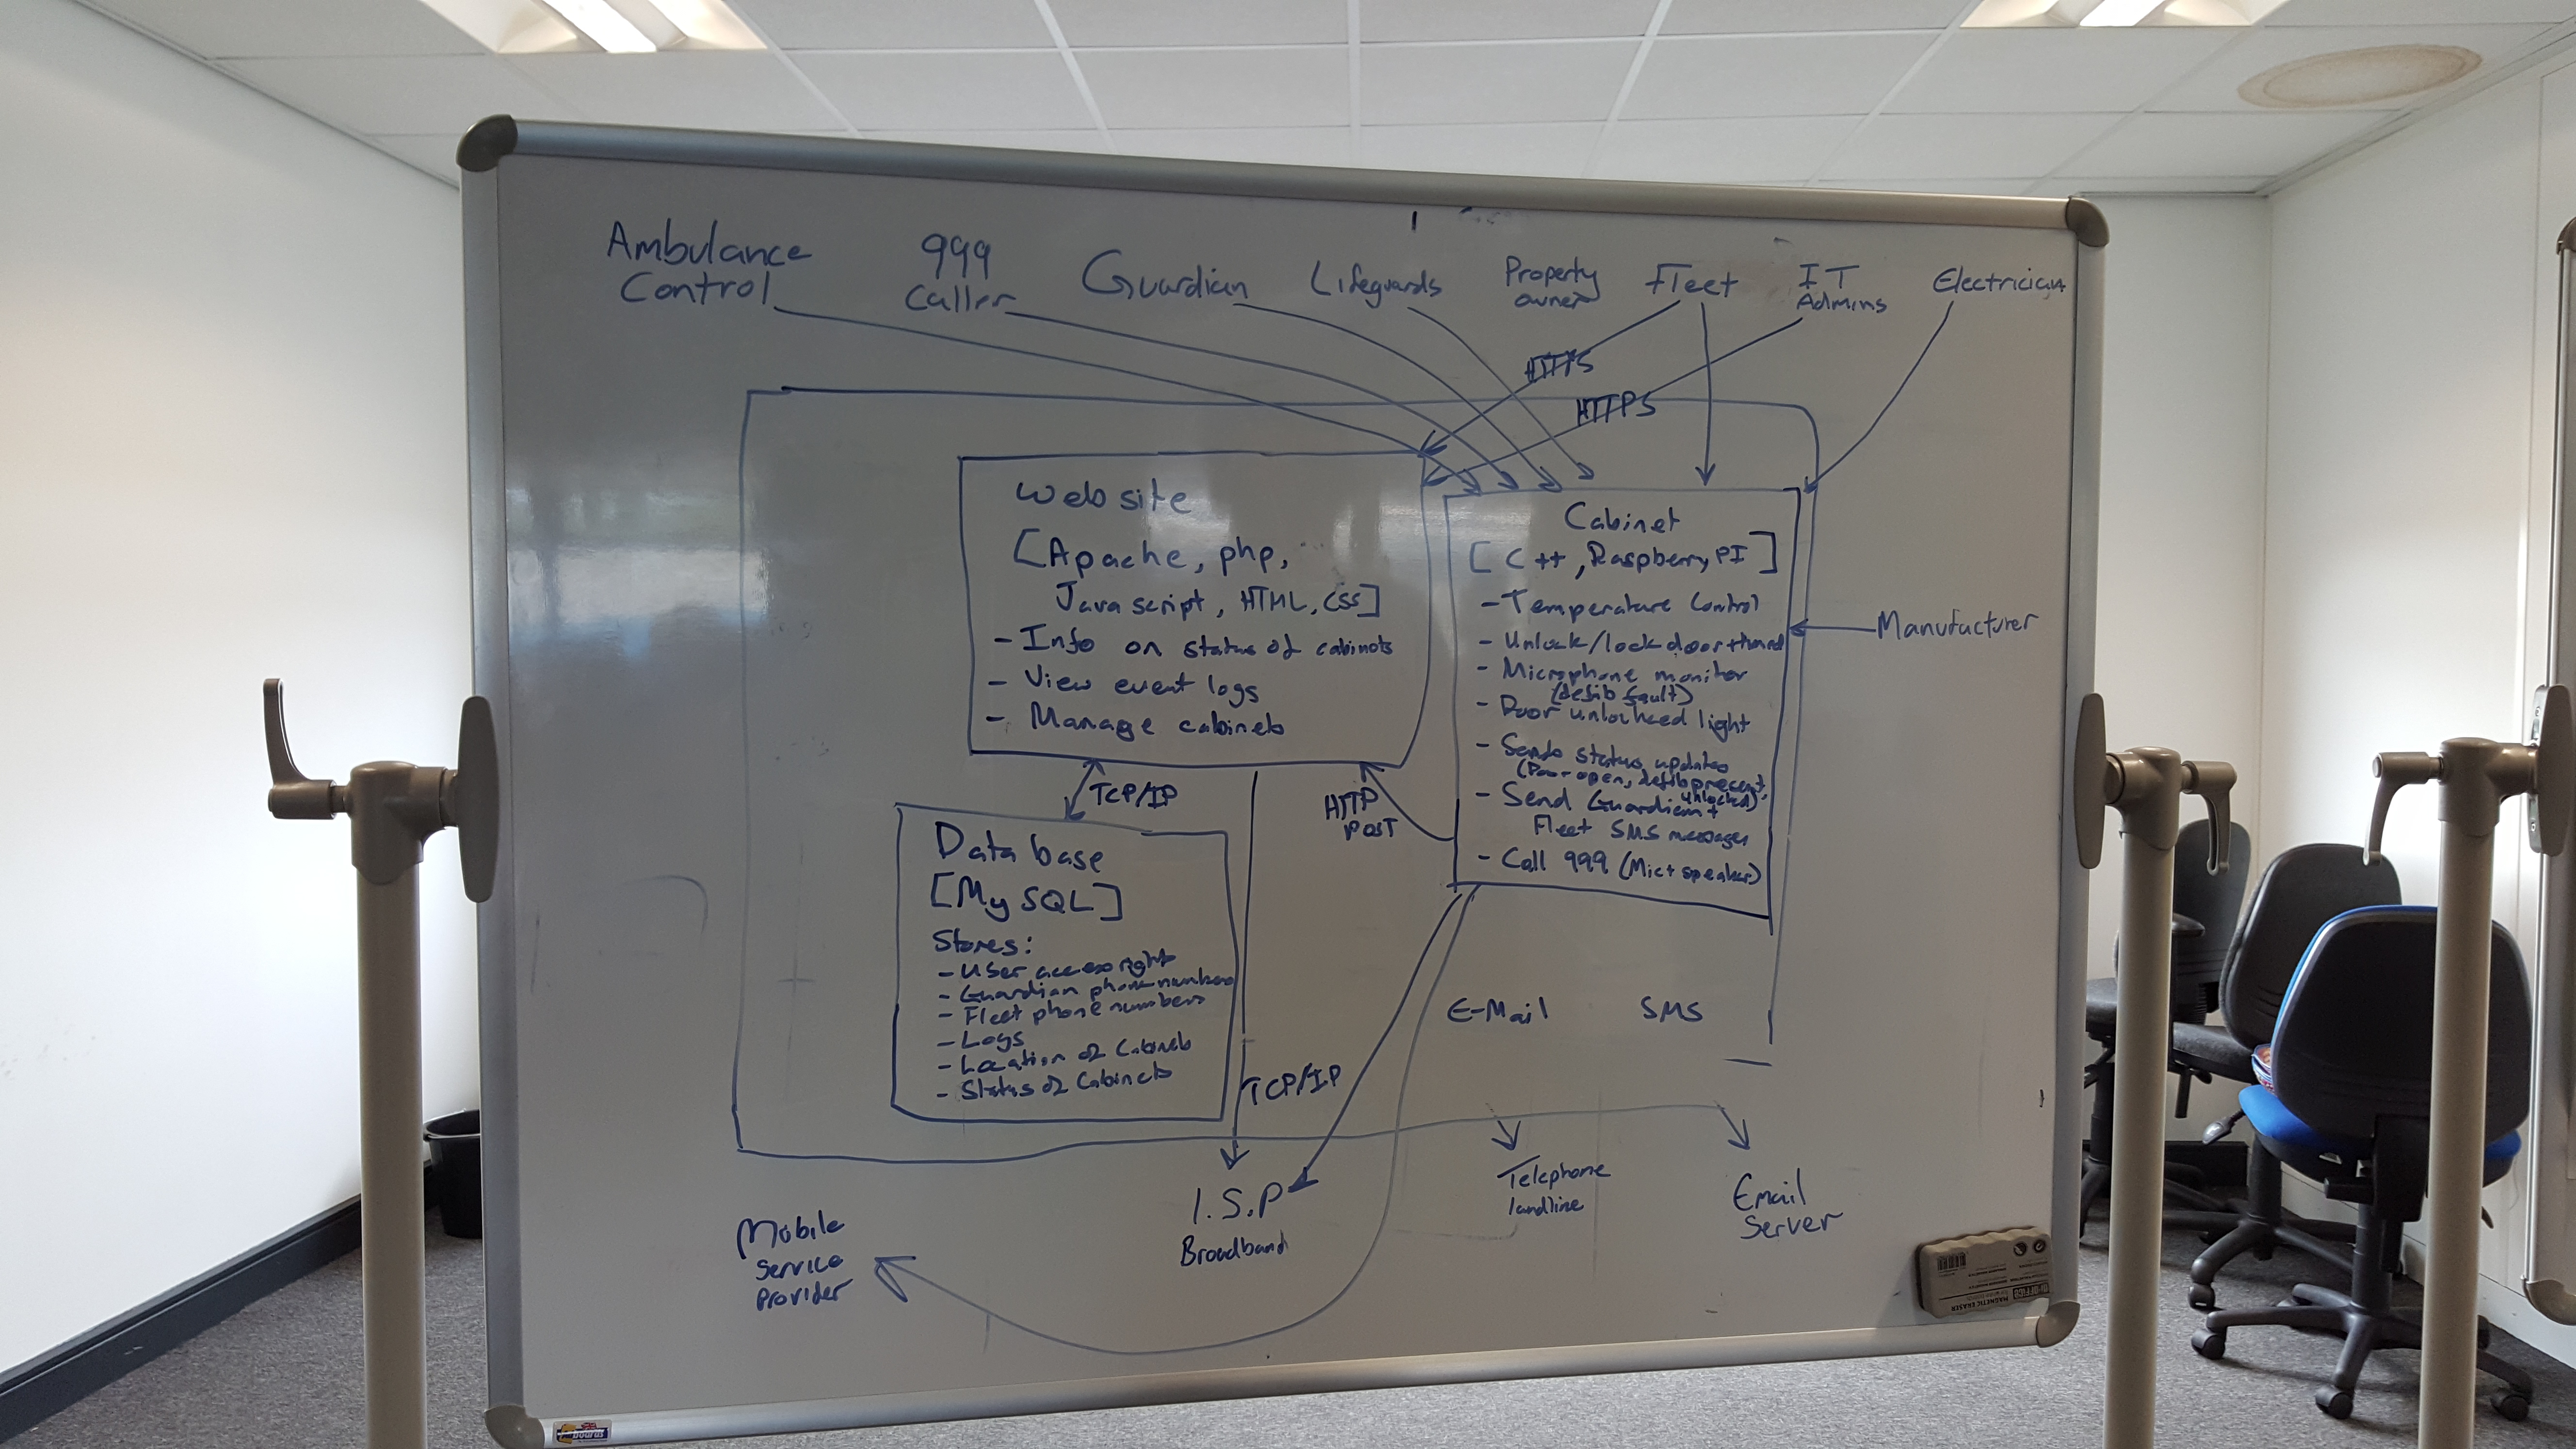 Ambulance
Control
999
Caller
Guardian
Lifeguards
Property
owner
Fleet
IT
Admins
Electrician
HTTPS
HTTPS
Website
[Apache, php,
Javascript, HTML, CSS]
- Info on status of cabinets
- View event logs
- Manage cabinets
Cabinet
[C++, Raspberry PI]
- Temperature Control
- Unlock/lock door
- Microphone monitor
(defib fault)
- Door unlocked light
- Sends status updates
(Door open, defib present,
unlocked)
- Send Guardian +
Fleet SMS messages
- Call 999 (Mic + speaker)
Manufacturer
TCP/IP
HTTP
POST
Database
[MySQL]
Stores:
- User access rights
- Guardian phone numbers
- Fleet phone numbers
- Logs
- Location of Cabinets
- Status of Cabinets
E-Mail
SMS
TCP/IP
I.S.P
Broadband
Telephone
landline
Email
Server
Mobile
Service
Provider
MAGNETIC ERASER